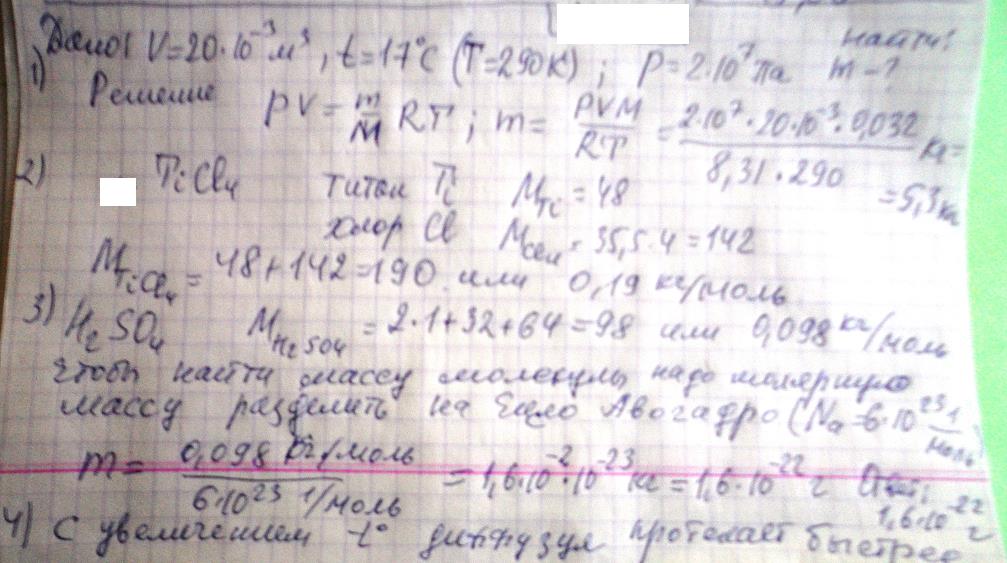 1) Дано: V=20·10⁻³м³, t=17°C (T=290K); P=2·10⁷Па найти: m-?
Решение PV=m/M RT; m= PVM/RT = 2·10⁷·20·10⁻³·0,032/8,31·290 кг= =5,3кг
2) TiCl₄ титан Ti M_Ti = 48
хлор Cl M = 35,5·4=142
M_TiCl₄ = 48+142=190 или 0,19 кг/моль
3) H₂SO₄ M_H₂SO₄ = 2·1+32+64=98 или 0,098 кг/моль
чтобы найти массу молекулы надо молярную
массу разделить на число Авогадро (Na=6·10²³ 1/моль)
m= 0,098 кг/моль / 6·10²³ 1/моль = 1,6·10⁻²·10⁻²³ кг = 1,6·10⁻²² г Ответ: 1,6·10⁻²² г
4) С увеличением t° диффузия протекает быстрее